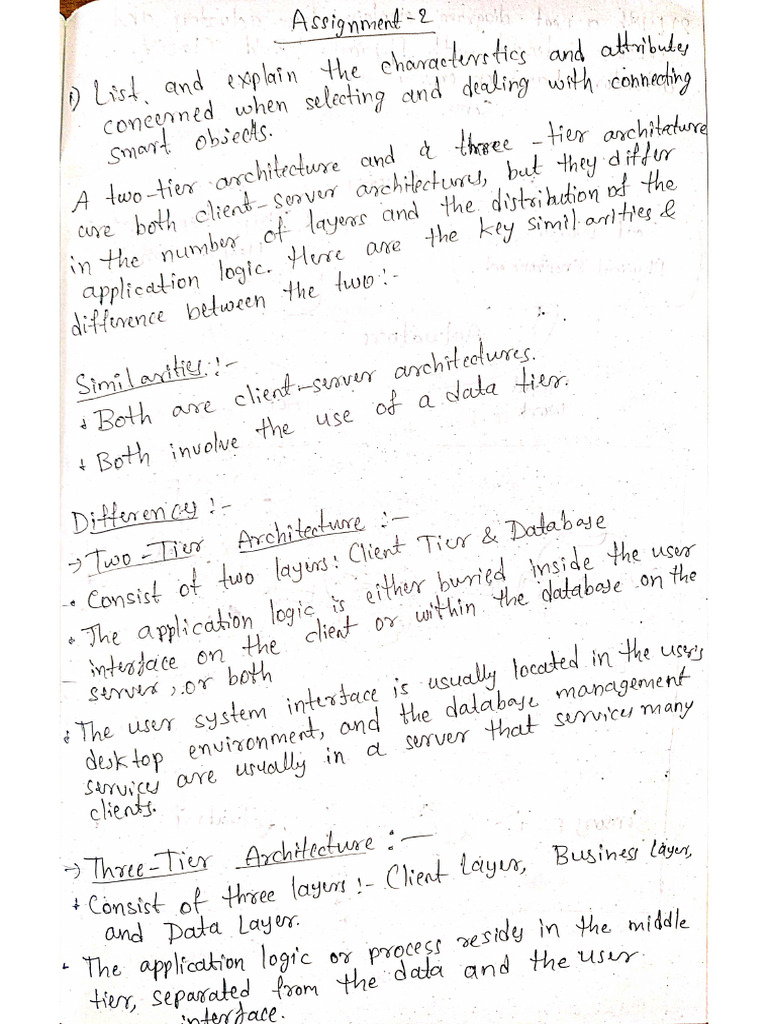 Assignment-2
1) List and explain the characterstics and attributes
concerned when selecting and dealing with connecting
smart objects.
A two-tier architecture and a three-tier architecture
are both client-server architectures, but they differ
in the number of layers and the distribution of the
application logic. Here are the key similarities &
difference between the two:-
Similarities:-
Both are client-server architectures.
Both involve the use of a data tier.
Differences:-
→ Two-Tier Architecture:-
• Consist of two layers: Client Tier & Database
• The application logic is either buried inside the user
interface on the client or within the database on the
server, or both
• The user system interface is usually located in the user's
desktop environment, and the database management
services are usually in a server that services many
clients.
→ Three-Tier Architecture:-
Consist of three layers:- Client Layer, Business Layer,
and Data Layer.
The application logic or process resides in the middle
tier, separated from the data and the user
interface.